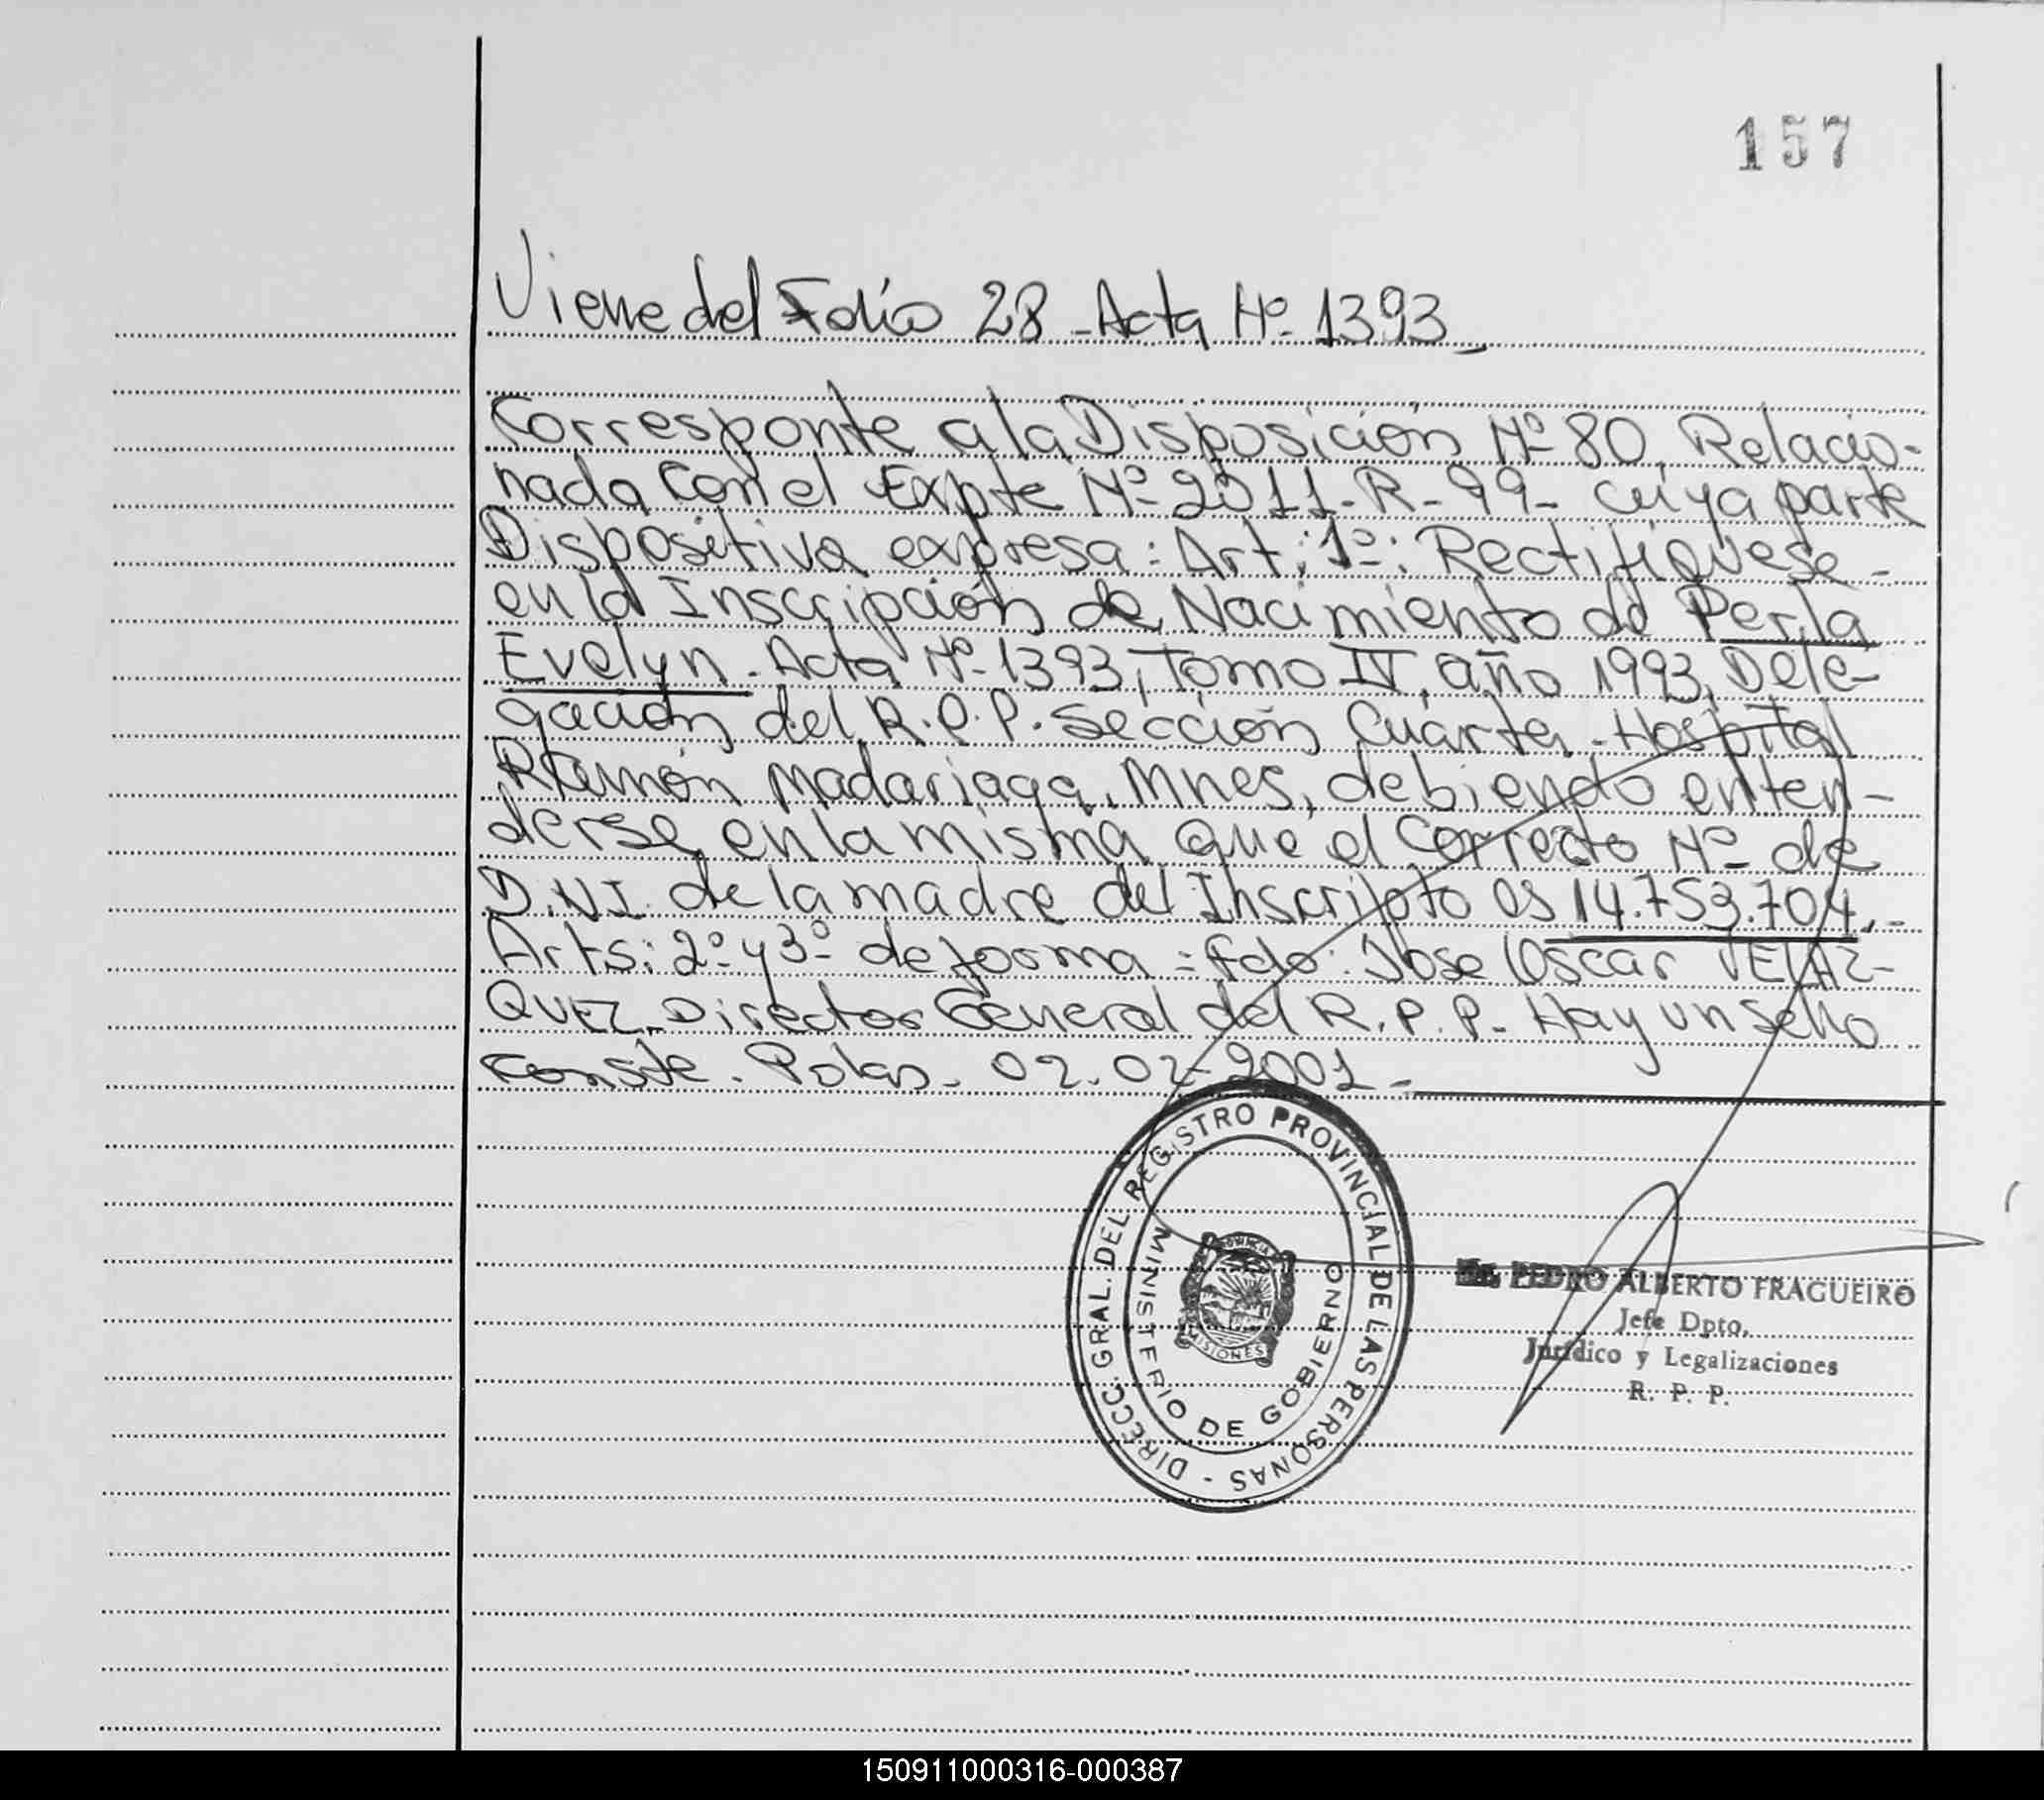 157
Viene del Folio 28 - Acta Nº 1393_
Corresponte a la Disposición Nº 80, Relacio-
nada con el Expte Nº 2011-R-99- cuya parte
Dispositiva expresa: Art: 1º: Rectifíquese-
en la Inscripción de Nacimiento de Perla
Evelyn. Acta Nº 1393, Tomo IV, año 1993, Dele-
gación del R.P.P. Sección Cuarta - Hospital
Ramón Madariaga, Mnes, debiendo enten-
derse, en la misma que el correcto Nº de
D.N.I. de la madre del Inscripto es 14.753.704.-
Arts: 2º y 3º de forma = fdo: Jose Oscar VELAZ-
QUEZ - Director General del R.P.P. - Hay un sello
conste. Pdas, 02.02-2001-
DIRECC. GRAL. DEL REGISTRO PROVINCIAL DE LAS PERSONAS -
MINISTERIO DE GOBIERNO
PROVINCIA
MISIONES
PEDRO ALBERTO FRAGUEIRO
Jefe Dpto.
Jurídico y Legalizaciones
R. P. P.
150911000316-000387